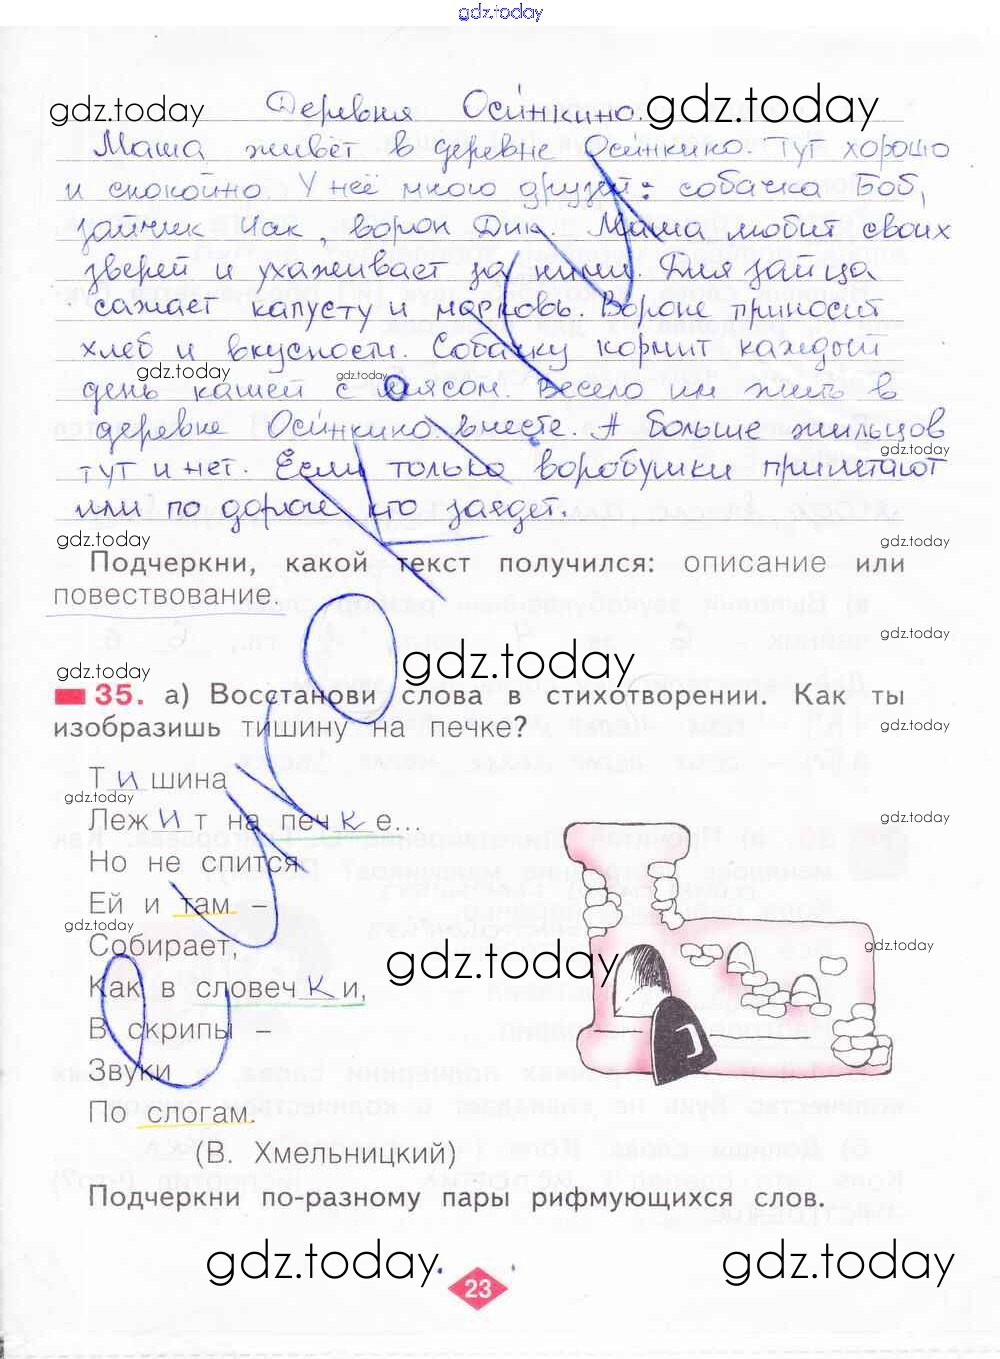 gdz.today
gdz.today gdz.today
Деревня Осинкино.
Маша живёт в деревне Осинкино. Тут хорошо
и спокойно. У неё много друзей: собачка Боб,
зайчик Чак, ворон Дик. Маша любит своих
зверей и ухаживает за ними. Для зайца
сажает капусту и морковь. Вороне приносит
хлеб и вкусности. Собачку кормит каждый
gdz.today gdz.today gdz.today
день кашей с мясом. Весело им жить в
деревне Осинкино вместе. А больше жильцов
gdz.today
тут и нет. Если только воробушки прилетают
или по дороге кто заедет.
gdz.today gdz.today
Подчеркни, какой текст получился: описание или
повествование.
gdz.today
gdz.today gdz.today
35. а) Восстанови слова в стихотворении. Как ты
изобразишь тишину на печке?
gdz.today
Тишина
gdz.today
Лежит на печке...
Но не спится
Ей и там –
gdz.today
Собирает,
gdz.today gdz.today
Как в словечки,
В скрипы –
Звуки
По слогам.
(В. Хмельницкий)
Подчеркни по-разному пары рифмующихся слов.
gdz.today gdz.today
23